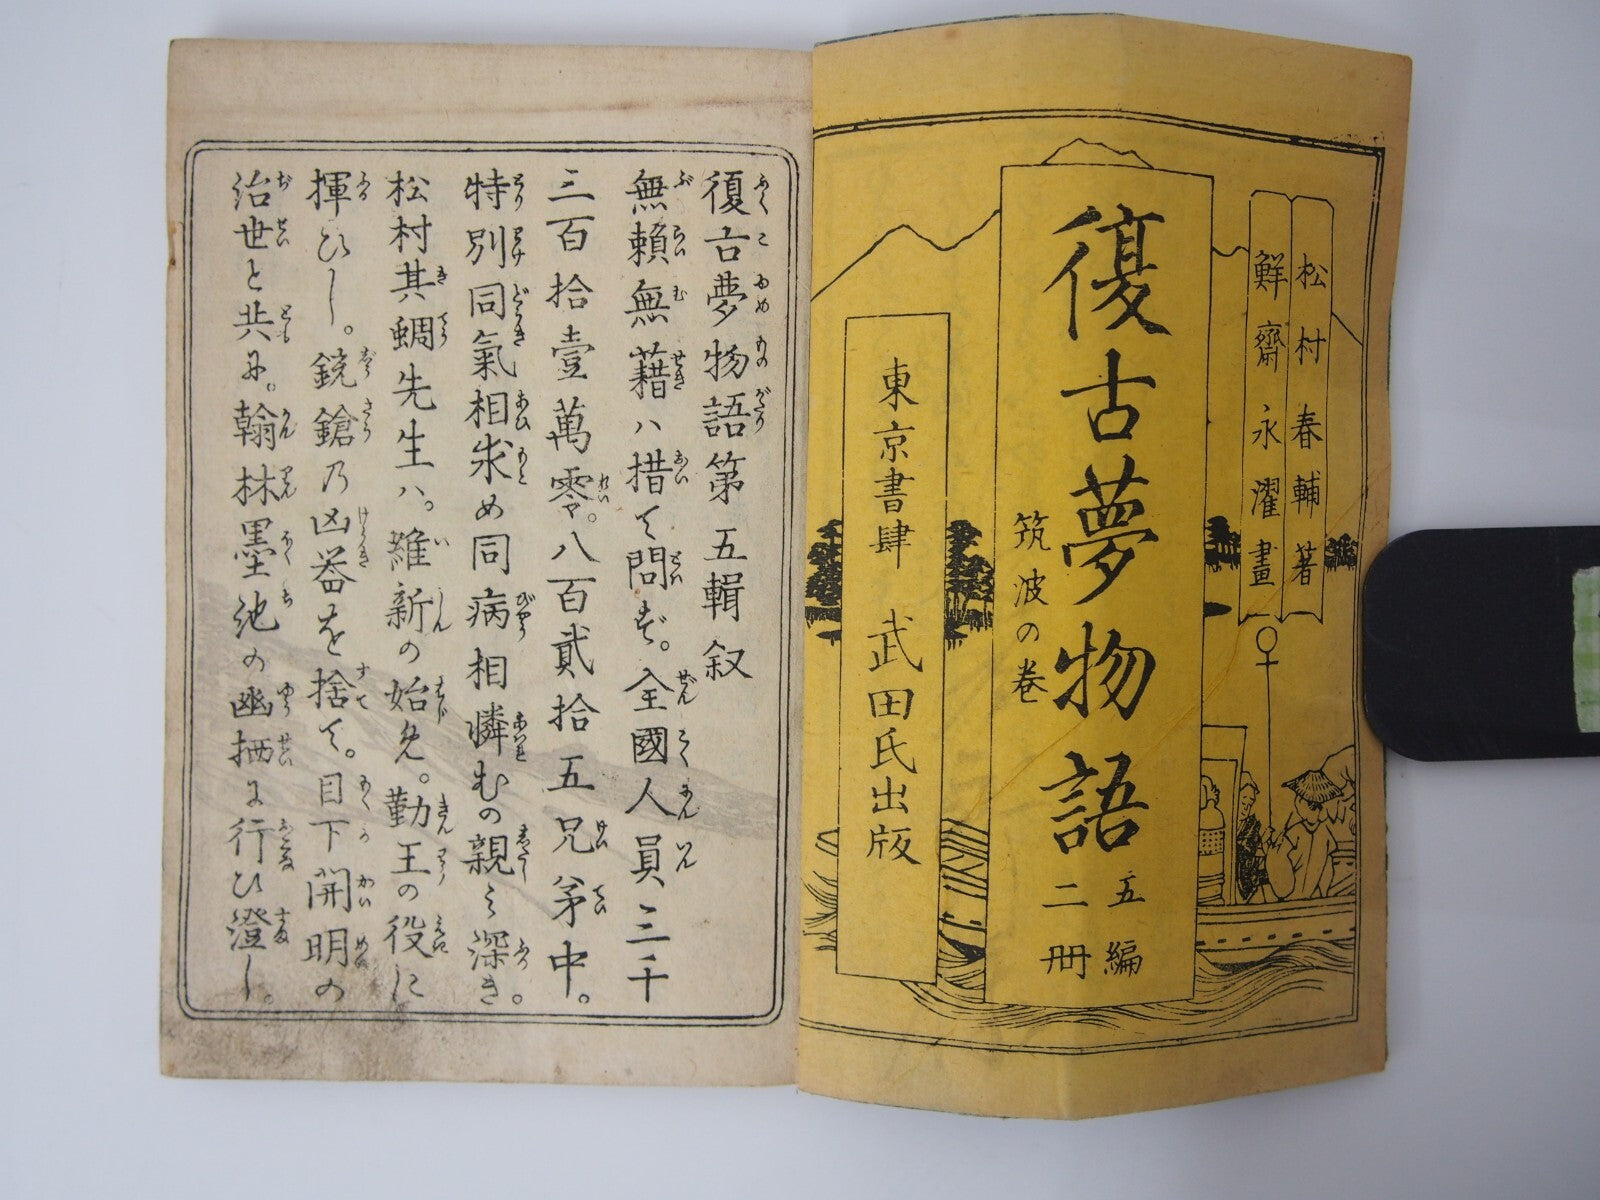 松村春輔著
鮮齋永濯畫
復古夢物語
五編
二冊
筑波の巻
東京書肆 武田氏出版
復古夢物語第五輯叙
無頼無藉ハ措て問ず。全國人員三千
三百拾壹萬零々。八百貳拾五兄弟中。
特別同氣相求め同病相憐むの親ミ深き。
松村其蜩先生ハ。維新の始め。勤王の役に
揮ひし。銃鎗乃凶器を捨て。目下開明の
治世と共に。翰林墨池の幽栖に行ひ澄し。